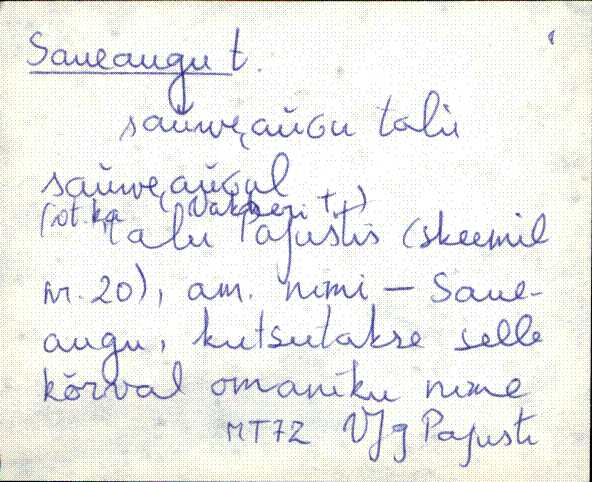 Saueaugu t.
saŭwe̮aŭGu talu
saŭwe̮aŭGul
(vt. ka Vakperi t.)
talu Pajustis (skeemil
nr. 20), am. nimi – Saue-
augu, kutsutakse selle
kõrval omaniku nime
MT72 VJg Pajusti